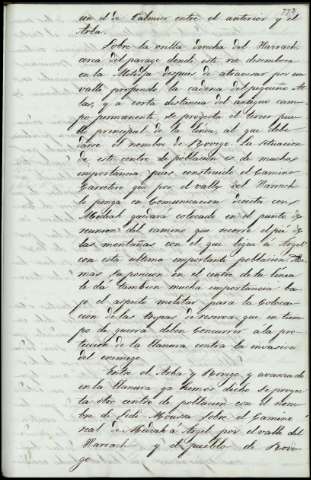 773
un el de Palmier entre el anterior y el
Arba.
Sobre la orilla derecha del Harrach
cerca del parage donde este rio desemboca
en la Metidja despues de atravesar por un
valle profundo la cadena del pequeño At-
las, y a corta distancia del antiguo cam-
po permanente, se proyecta el tercer pue-
blo principal de la linea, al que debe
darse el nombre de Rovigo. La situacion
de este centro de poblacion es de mucha
importancia pues construido el Camino
Carretero que por el valle del Harrach
le ponga en Comunicacion directa con
Medeah quedará colocado en el punto de
reunion del camino que recorre el pié de
las montañas con el que liga á Argel
con esta ultima importante poblacion. Ade-
mas su posicion en el centro de la linea
le da tambien mucha importancia ba-
jo el aspecto militar para la Coloca-
cion de las tropas de reserva que en tiem-
po de guerra deben Concurrir a la pro-
teccion de la llanura contra la invasion
del enemigo.
Entre el Arba y Rovigo, y avanzado
en la llanura ya hemos dicho se proyec-
ta otro centro de poblacion con el nom-
bre de Sidi Moussa sobre el Camino
real de Medeah á Argel por el valle del
Harrach y el pueblo de Rovi-
go